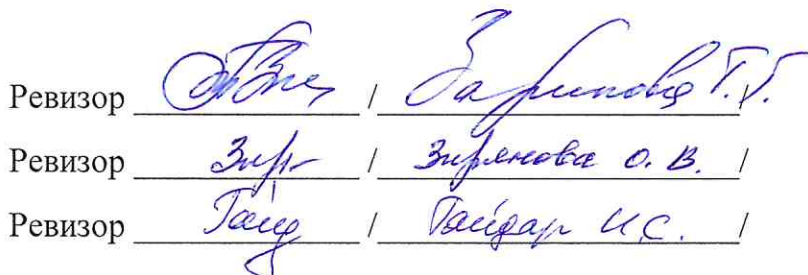 Ревизор / Зарипова Г.Г. /
Ревизор Зыр / Зырянова О. В. /
Ревизор Гайд / Гайдар И.С. /